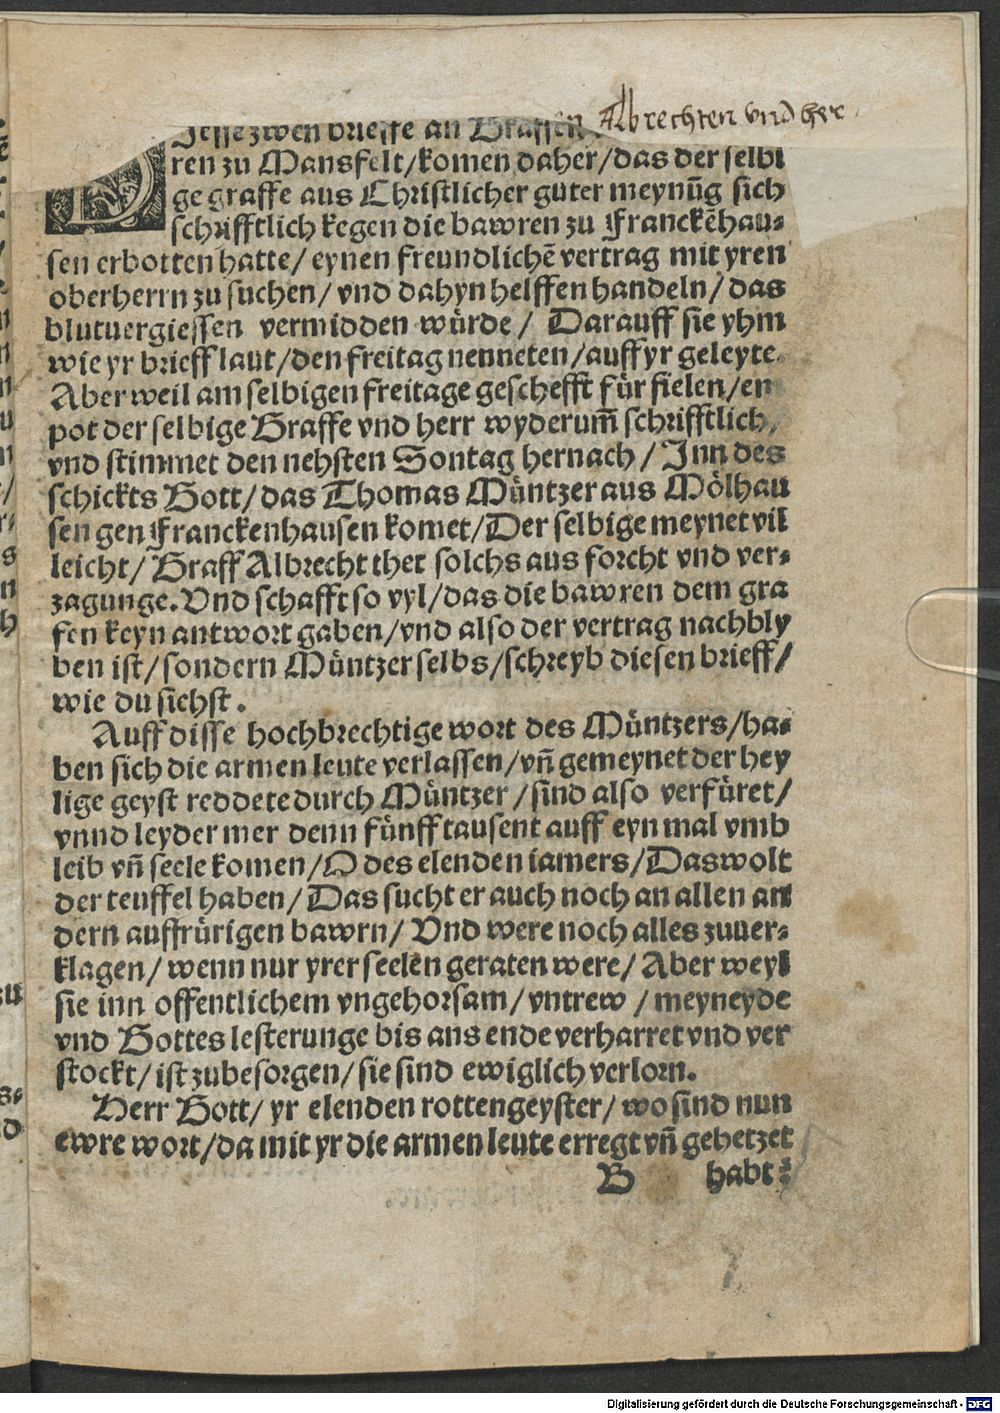 DJesse zwen brieffe an Graffen Albrechten vnd her
ren zu Mansfelt/komen daher/das der selbi
ge graffe aus Christlicher guter meynũg sich
schrifftlich kegen die bawren zu Franckẽhau⸗
sen erbotten hatte/ eynen freundlichẽ vertrag mit yren
oberherrn zu suchen/ vnd dahyn helffen handeln/ das
blutuergiessen vermidden würde / Darauff sie yhm
wie yr brieff laut/den freitag nenneten/auff yr geleyte.
Aber weil am selbigen freitage geschefft für fielen/en
pot der selbige Graffe vnd herr wyderum̃ schrifftlich/
vnd stimmet den nehsten Sontag hernach / Inn des
schickts Gott/das Thomas Müntzer aus Mölhau
sen gen Franckenhausen komet/Der selbige meynet vil
leicht/ Graff Albrecht thet solchs aus forcht vnd ver⸗
zagunge. Vnd schafft so vyl/das die bawren dem gra
fen keyn antwort gaben/vnd also der vertrag nachbly
ben ist/sondern Müntzer selbs/schreyb diesen brieff/
wie du sichst.
Auff disse hochbrechtige wort des Müntzers/ha⸗
ben sich die armen leute verlassen/vn̄ gemeynet der hey
lige geyst reddete durch Müntzer / sind also verfüret/
vnnd leyder mer denn fünff tausent auff eyn mal vmb
leib vn̄ seele komen/O des elenden iamers/Das wolt
der teuffel haben/ Das sucht er auch noch an allen an
dern auffrürigen bawrn/ Vnd were noch alles zuuer⸗
klagen/ wenn nur yrer seelen geraten were/ Aber weyl
sie inn offentlichem vngehorsam/vntrew / meyneyde
vnd Gottes lesterunge bis ans ende verharret vnd ver
stockt/ ist zubesorgen/ sie sind ewiglich verlorn.
Herr Gott/ yr elenden rottengeyster/ wo sind nun
ewre wort/da mit yr die armen leute erregt vn̄ gehetzet
B habt?
Digitalisierung gefördert durch die Deutsche Forschungsgemeinschaft - DFG